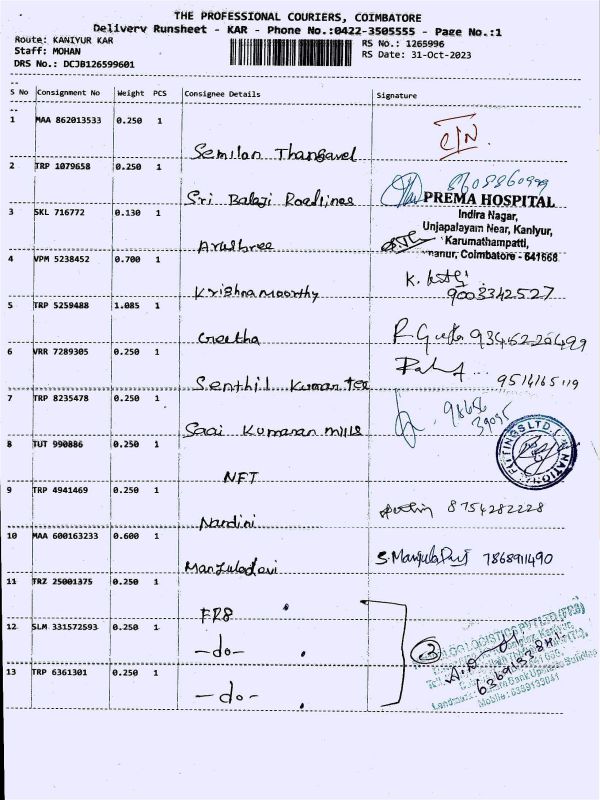 THE PROFESSIONAL COURIERS, COIMBATORE
Delivery Runsheet - KAR - Phone No.:0422-3505555 - Page No.:1
Route: KANIYUR KAR
RS No.: 1265996
Staff: MOHAN
RS Date: 31-Oct-2023
DRS No.: DCJB126599601
S No Consignment No Weight PCS Consignee Details Signature
1 MAA 862013533 0.250 1
Semilan Thangavel
2 TRP 1079658 0.250 1
Sri Balaji Roadlines
8608860999
PREMA HOSPITAL
Indira Nagar,
3 SKL 716772 0.130 1
Unjapalayam Near, Kaniyur,
Karumathampatti,
Arulsree
Coimbatore - 641668
4 VPM 5238452 0.700 1
Krishnamoorthy
K.
9003342527
5 TRP 5259488 1.085 1
Geetha
6 VRR 7289305 0.250 1
Senthil Kumar Tex
9514165119
7 TRP 8235478 0.250 1
Saai Kumaran mills
8 TUT 990886 0.250 1
NFT
9 TRP 4941469 0.250 1
Nandini
8754282228
10 MAA 600163233 0.600 1
Manjuladevi
S. Manjula Devi 7868911490
11 TRZ 25001375 0.250 1
FR8
12 SLM 331572593 0.250 1
-do-
3
13 TRP 6361301 0.250 1
-do-